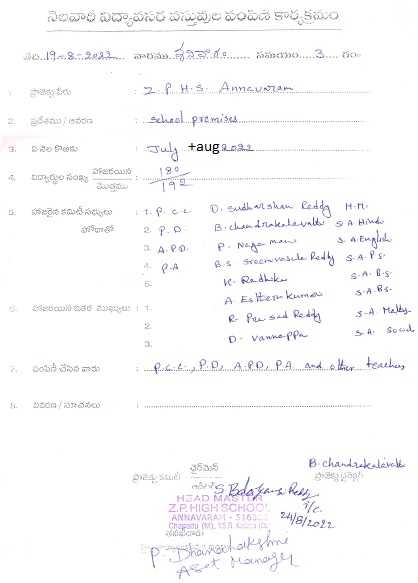 నెలవారి విద్యావసర వస్తువుల పంపిణి కార్యక్రమం
తేది: 19-8-2022 వారము శనివారం సమయం 3 గం
1. ప్రాజెక్టు పేరు : Z.P.H.S. Annavaram
2. ప్రదేశము / ఆవరణ : school premises
3. ఏ నెల కొఱకు : July +aug 2022
4. విద్యార్థుల సంఖ్య హాజరయిన మొత్తము : 180/192
5. హాజరైన కమిటీ సభ్యులు హోదాతో
1. P.C.C D. Sudharshan Reddy H.M.
2. P.D. B. chandrakalavathi S.A. Hindi
3. A.P.D. P. Nagamani S.A. English
4. P.A B.S. Sreenivasulu Reddy S.A. P.S.
5. K. Radhika S.A. B.S.
6. హాజరయిన ఇతర ముఖ్యులు :
1. A. Estherukumari S.A. B.S.
2. R. Prasad Reddy S.A. Maths
3. D. Vannappa S.A. Social
7. పంపిణీ చేసిన వారు : P.C.C, P.D, A.P.D, P.A. and other teachers
8. వివరణ / సూచనలు :
ప్రాజెక్టు కమిటీ ఛైర్మెన్
B. chandrakalavathi
ప్రాజెక్టు డైరెక్టర్
I/C.
24/8/2022
HEAD MASTER
Z.P. HIGH SCHOOL
ANNAVARAM - 516
Chapadu (M), Y.S.R. Kadapa
P. Dhanalakshmi
Asst Manager